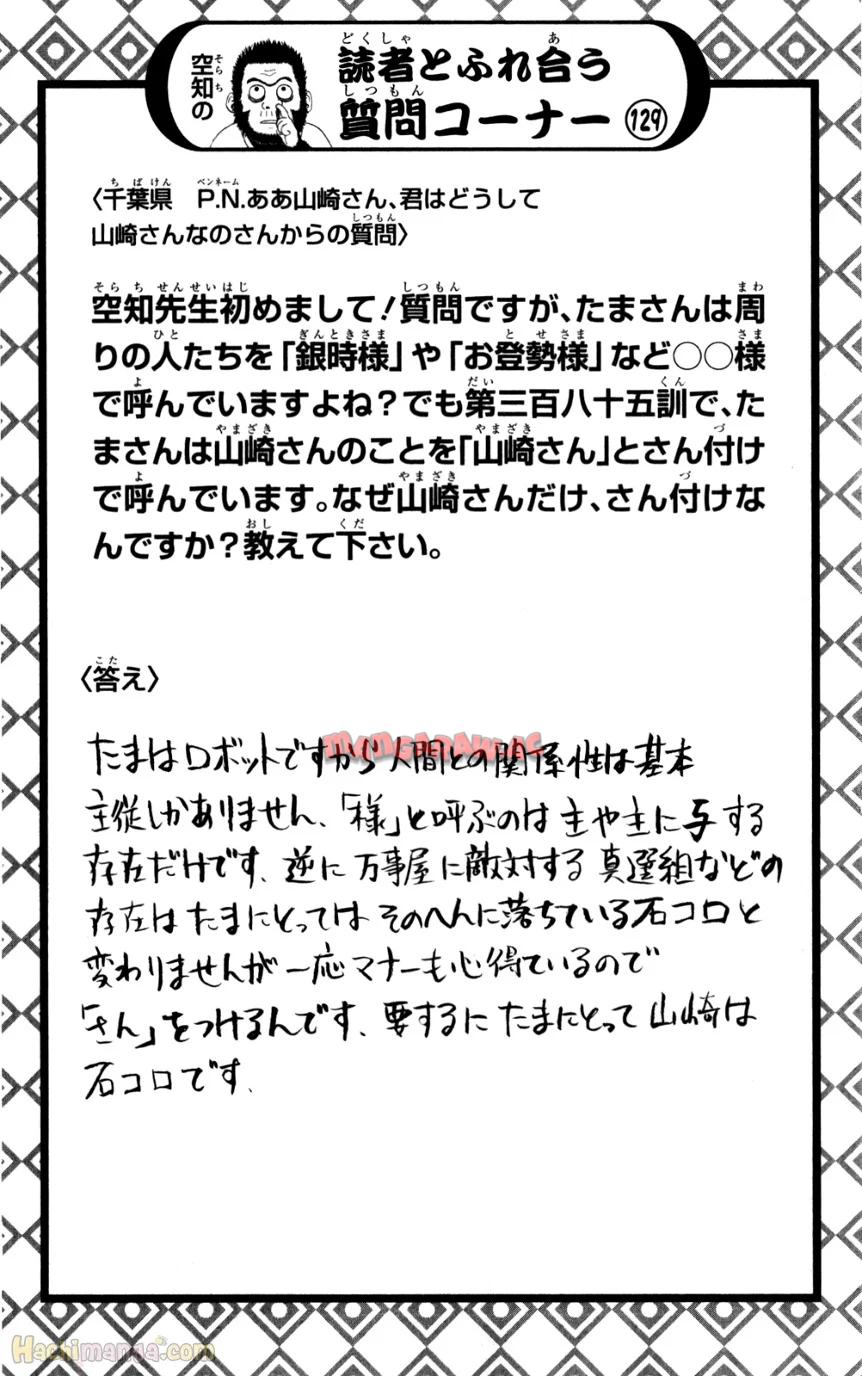 空知の
読者とふれ合う
質問コーナー 129
〈千葉県　P.N.ああ山崎さん、君はどうして
山崎さんなのさんからの質問〉
空知先生初めまして！質問ですが、たまさんは周
りの人たちを「銀時様」や「お登勢様」など○○様
で呼んでいますよね？でも第三百八十五訓で、た
まさんは山崎さんのことを「山崎さん」とさん付け
で呼んでいます。なぜ山崎さんだけ、さん付けな
んですか？教えて下さい。
〈答え〉
たまはロボットですから人間との関係性は基本
主従しかありません、「様」と呼ぶのは主や主に与する
存在だけです、逆に万事屋に敵対する真選組などの
存在はたまにとってはそのへんに落ちている石コロと
変わりませんが一応マナーも心得ているので
「さん」をつけるんです、要するにたまにとって山崎は
石コロです、
MANGARAW.AC
Hachimanga.com